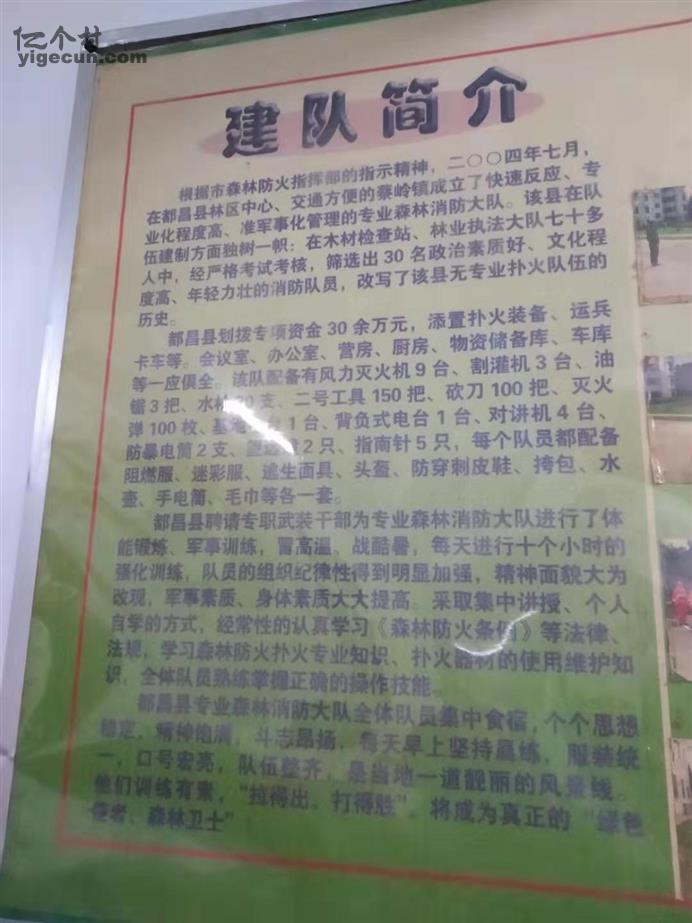 亿个村
yigecun.com
建队简介
根据市森林防火指挥部的指示精神，二〇〇四年七月，
在都昌县林区中心、交通方便的蔡岭镇成立了快速反应、专
业化程度高、准军事化管理的专业森林消防大队。该县在队
伍建制方面独树一帜：在木材检查站、林业执法大队七十多
人中，经严格考试考核，筛选出30名政治素质好、文化程
度高、年轻力壮的消防队员，改写了该县无专业扑火队伍的
历史。
都昌县划拨专项资金30余万元，添置扑火装备、运兵
卡车等。会议室、办公室、营房、厨房、物资储备库、车库
等一应俱全。该队配备有风力灭火机9台、割灌机3台、油
锯3把、水枪20支、二号工具150把、砍刀100把、灭火
弹100枚、基地台1台、背负式电台1台、对讲机4台、
防暴电筒2支、望远镜2只、指南针5只，每个队员都配备
阻燃服、迷彩服、逃生面具、头盔、防穿刺皮鞋、挎包、水
壶、手电筒、毛巾等各一套。
都昌县聘请专职武装干部为专业森林消防大队进行了体
能锻炼、军事训练，冒高温、战酷暑，每天进行十个小时的
强化训练，队员的组织纪律性得到明显加强，精神面貌大为
改观，军事素质、身体素质大大提高。采取集中讲授、个人
自学的方式，经常性的认真学习《森林防火条例》等法律、
法规，学习森林防火扑火专业知识、扑火器材的使用维护知
识，全体队员熟练掌握正确的操作技能。
都昌县专业森林消防大队全体队员集中食宿，个个思想
稳定、精神饱满，斗志昂扬。每天早上坚持晨练，服装统
一，口号宏亮，队伍整齐，是当地一道靓丽的风景线。
他们训练有素，“拉得出、打得胜”，将成为真正的“绿色
使者、森林卫士”